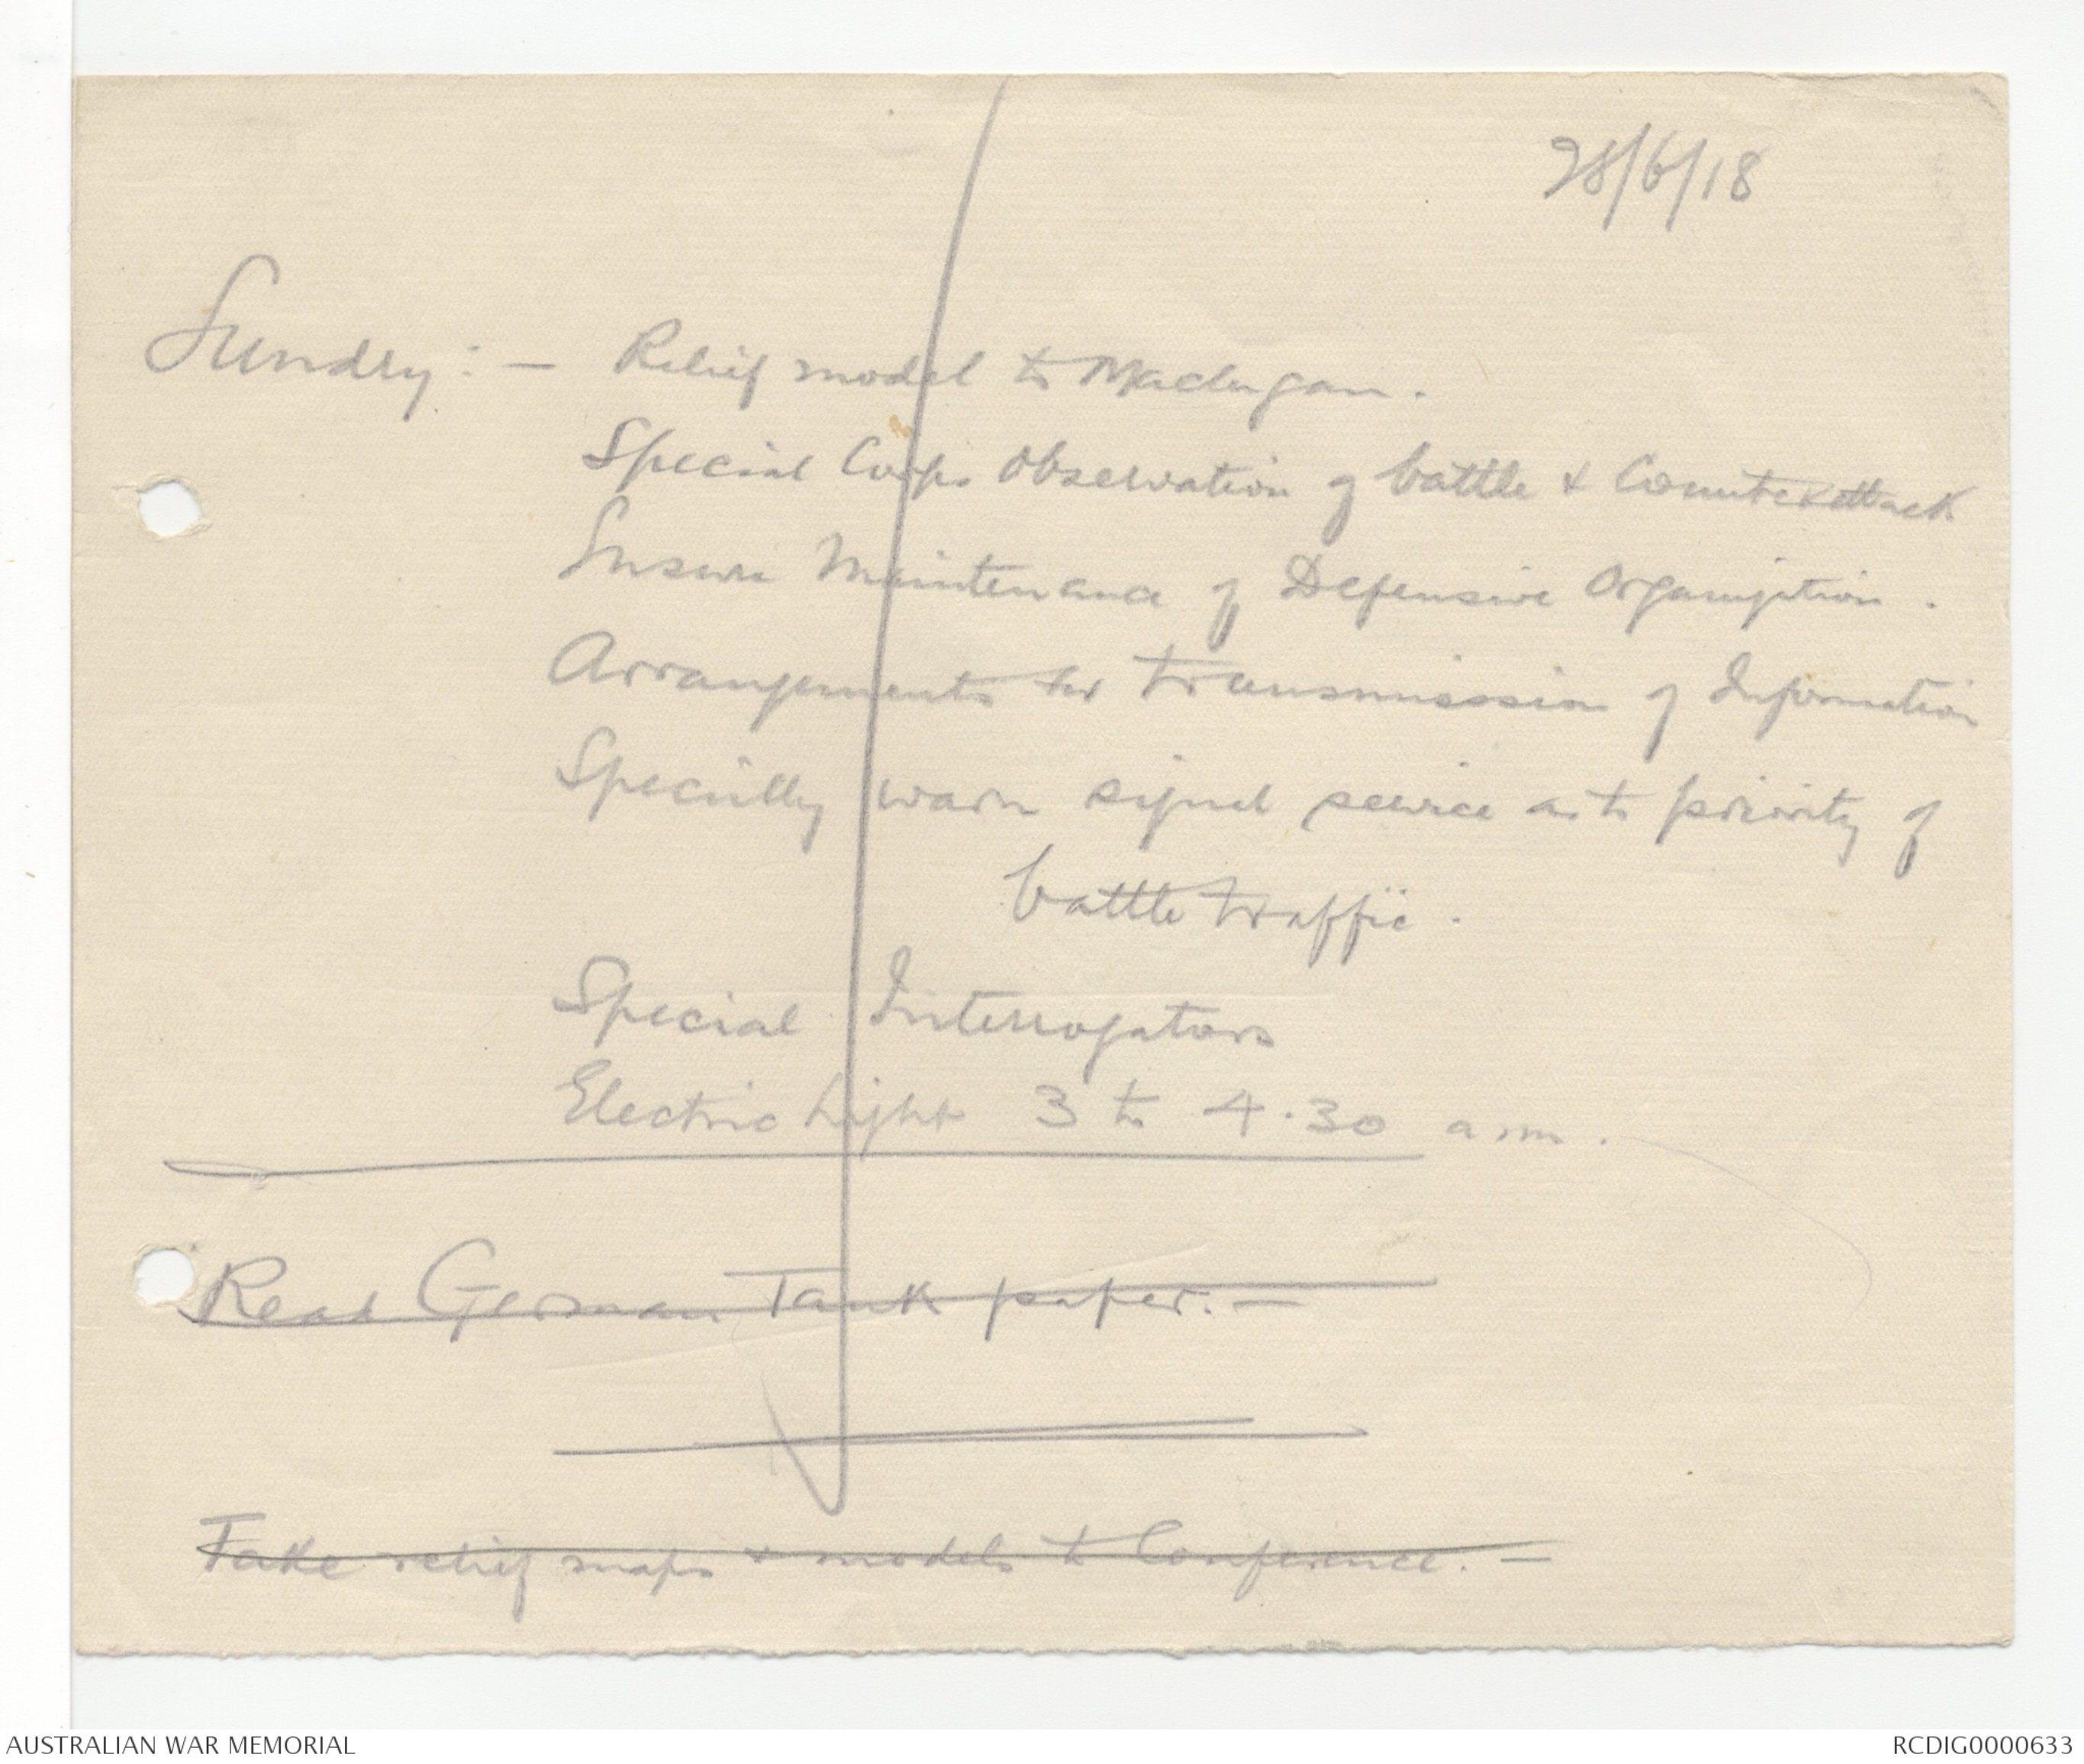 28/6/18
Sundry: — Relief model to Maclagan.
Special Corps Observation of battle & Counterattack
Insure Maintenance of Defensive Organization.
Arrangements for transmission of Information
Specially warn signal service as to priority of
battle traffic.
Special Interrogators
Electric Light 3 to 4.30 am.
Read German Tank paper. —
Take relief maps & models to Conference. —
AUSTRALIAN WAR MEMORIAL
RCDIG0000633